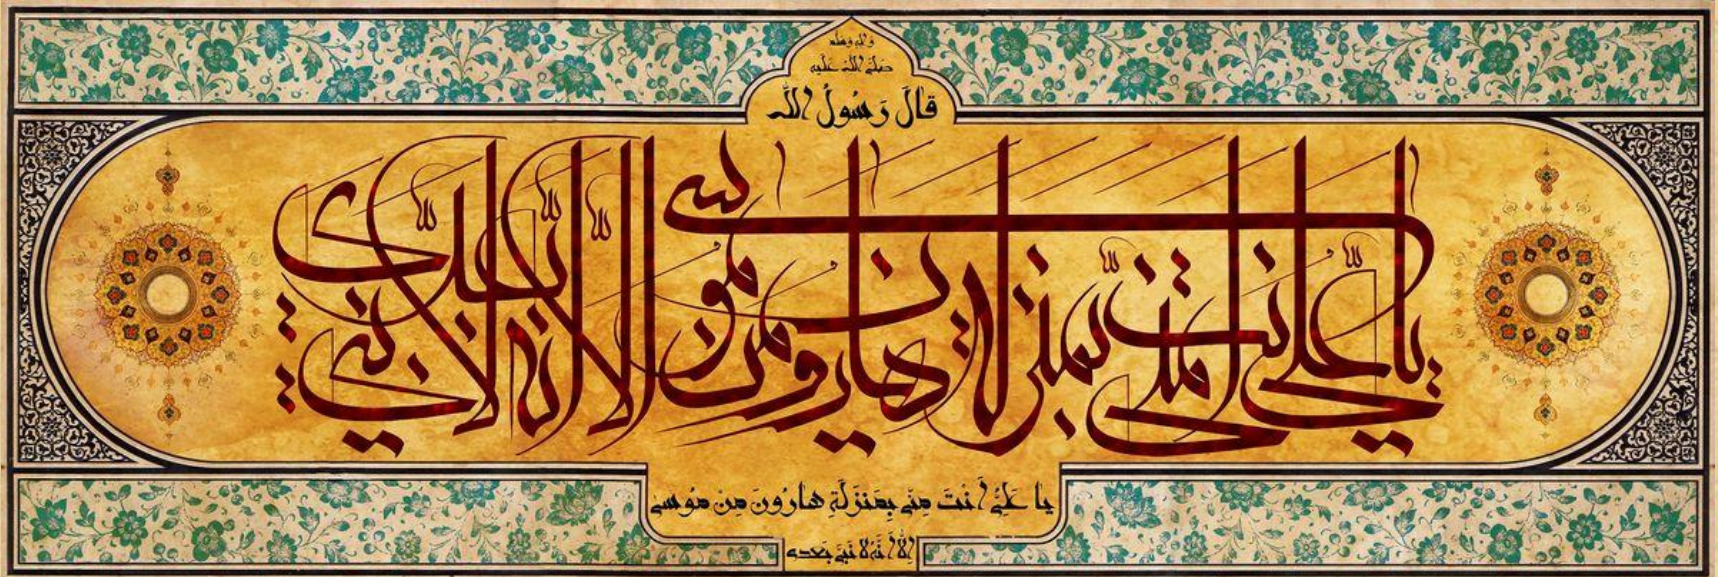 وَآلِهِ وَسَلَّم
صَلَّى اللّٰهُ عَلَيْهِ
قالَ رَسُولُ اللّٰه
يا علي انت مني بمنزلة هارون من موسى الا انه لا نبي بعدي
يا عَلِيُّ أَنْتَ مِنّي بِمَنزِلَةِ هارُونَ مِن مُوسى
إِلّا أَنَّهُ لا نَبِيَّ بَعدي